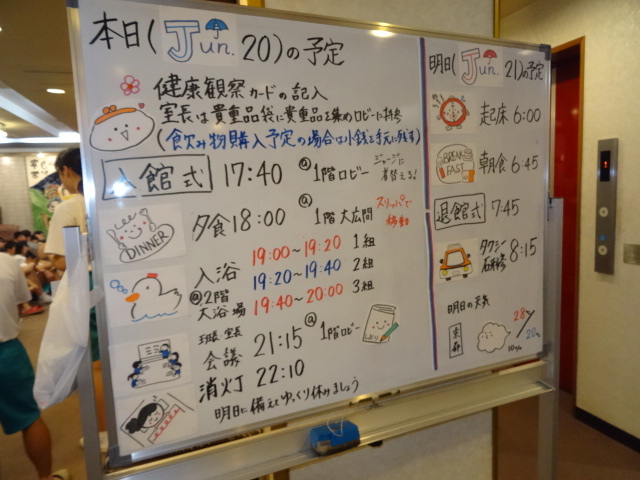 本日(Jun. 20)の予定
健康観察カードの記入
室長は貴重品袋に貴重品を集めロビーに持参
(飲食物購入予定の場合は小銭を手元に残す)
入館式 17:40 @1階ロビー ジャージに着替える!
夕食 18:00 @1階 大広間 スリッパで移動
DINNER
入浴 19:00~19:20 1組
@2階 19:20~19:40 2組
大浴場 19:40~20:00 3組
班長・室長
会議 21:15 @1階ロビー
しおり
消灯 22:10
明日に備えてゆっくり休みましょう
明日(Jun. 21)の予定
起床 6:00
BREAKFAST
朝食 6:45
退館式 7:45
タクシー研修 8:15
明日の天気
京都
28℃/20℃
10%